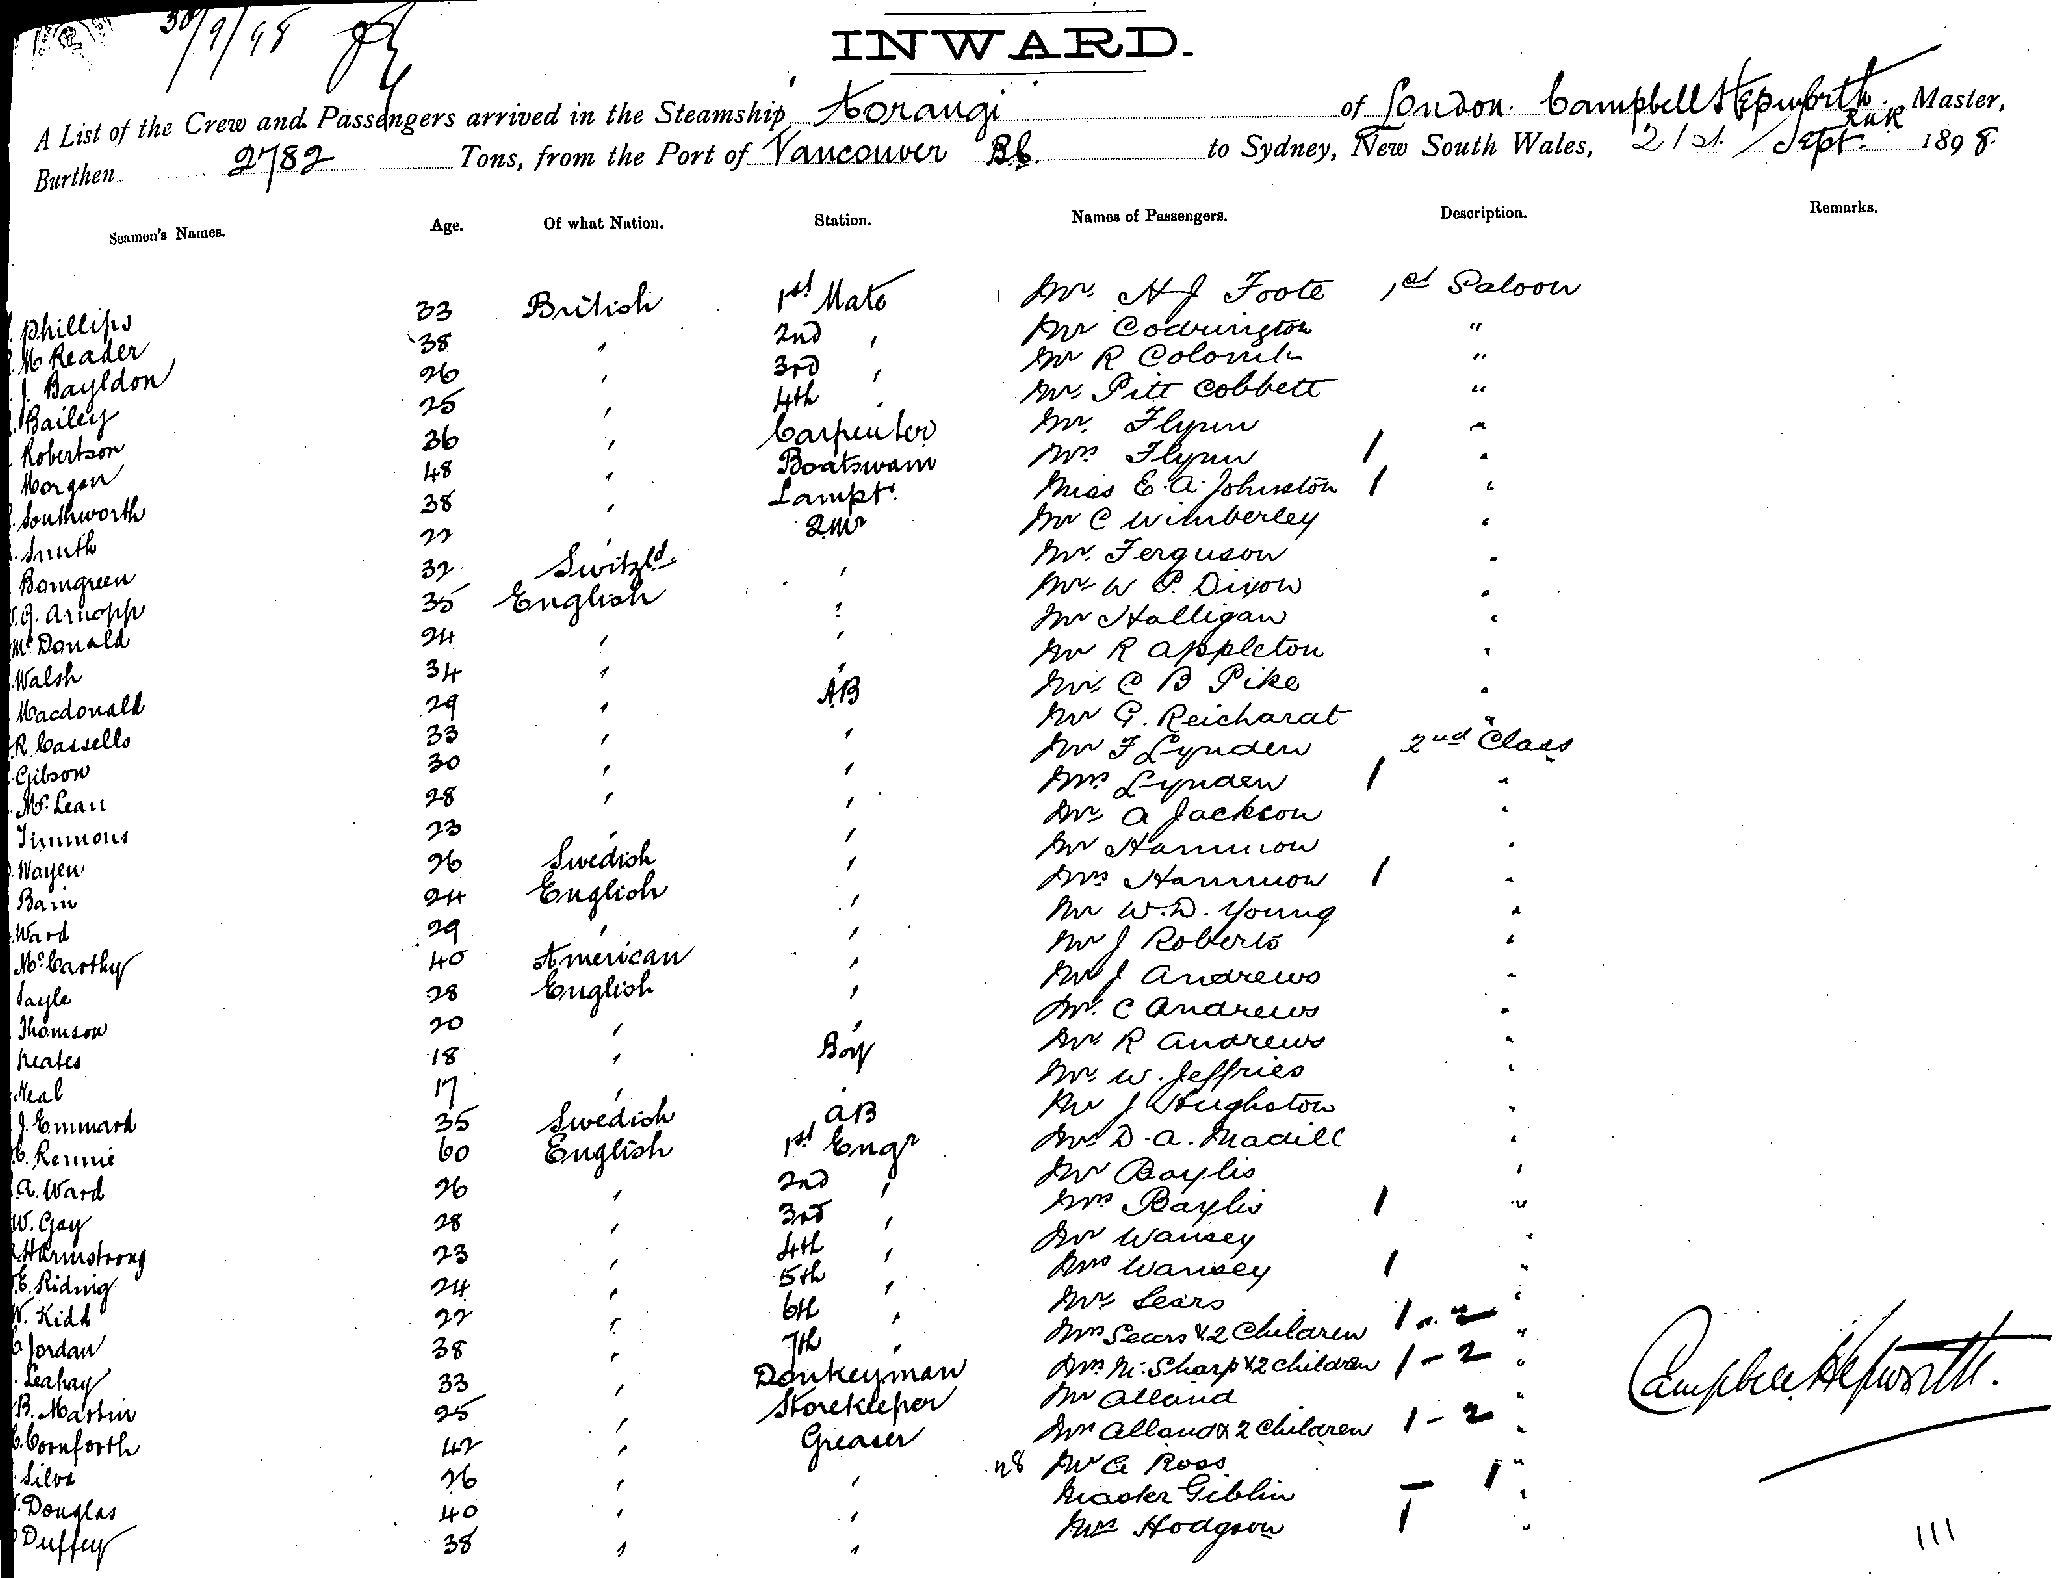 30/9/98
INWARD.
A List of the Crew and Passengers arrived in the Steamship Aorangi of London. Campbell Hepworth. RNR Master,
Burthen 2782 Tons, from the Port of Vancouver B.C. to Sydney, New South Wales, 21st. Sept. 1898.
Seamen's Names. Age. Of what Nation. Station. Names of Passengers. Description. Remarks.
Phillips 33 British 1st Mate Mr. H J Foote 1st Saloon
M Reader 38 , 2nd , Mr Codrington "
J. Bayldon 26 , 3rd , Mr R Colomb "
Bailey 25 , 4th , Mr. Pitt Cobbett "
Robertson 36 , Carpenter Mr. Flynn "
Morgan 48 , Boatswain Mrs Flynn 1 "
Southworth 38 , Lampt. Miss E. A. Johnston 1 "
Smith 22 , Q.Mr Mr C Wimberley "
Bomgreen 32 Switzld. , Mr. Ferguson "
G. Arnopp 35 English , Mr W P. Dixon "
McDonald 24 , , Mr Halligan "
Walsh 34 , , Mr R Appleton "
Macdonald 29 , AB Mr. C B Pike "
R. Cassells 33 , , Mr G. Reichardt "
Gibson 30 , , Mr F Lynden 2nd Class
McLean 28 , , Mrs Lynden 1 "
Timmons 23 , , Mr. A Jackson "
Wayen 26 Swedish , Mr Hammon "
Bain 24 English , Mrs Hammon 1 "
Ward 29 , , Mr W. D. Young "
McCarthy 40 American , Mr J Roberts "
Sayle 28 English , Mr J Andrews "
Thomson 20 , , Mr. C Andrews "
Keates 18 , Boy Mr R Andrews "
Neal 17 , , Mr. W. Jeffries "
J. Emmard 35 Swedish AB Mr J Hughston "
C. Rennie 60 English 1st Engr Mr. D. A. Madill "
A. Ward 26 , 2nd , Mr Baylis "
W. Gay 28 , 3rd , Mrs Baylis 1 "
Harmstrong 23 , 4th , Mr Wansey "
E. Riding 24 , 5th , Mrs Wansey 1 "
W. Kidd 22 , 6th , Mr. Sears "
Jordan 38 , 7th , Mrs Sears & 2 Children 1 - 2 "
Leahay 33 , Donkeyman Mrs M. Sharp & 2 children 1 - 2 "
B. Martin 25 , Storekeeper Mr Alland "
C. Cornforth 42 , Greaser Mrs Alland & 2 Children 1 - 2 "
Silva 26 , , 28 Mr A Ross "
Douglas 40 , , Master Giblin - 1 "
Duffey 38 , , Mrs Hodgson 1 "
Campbell Hepworth.
111